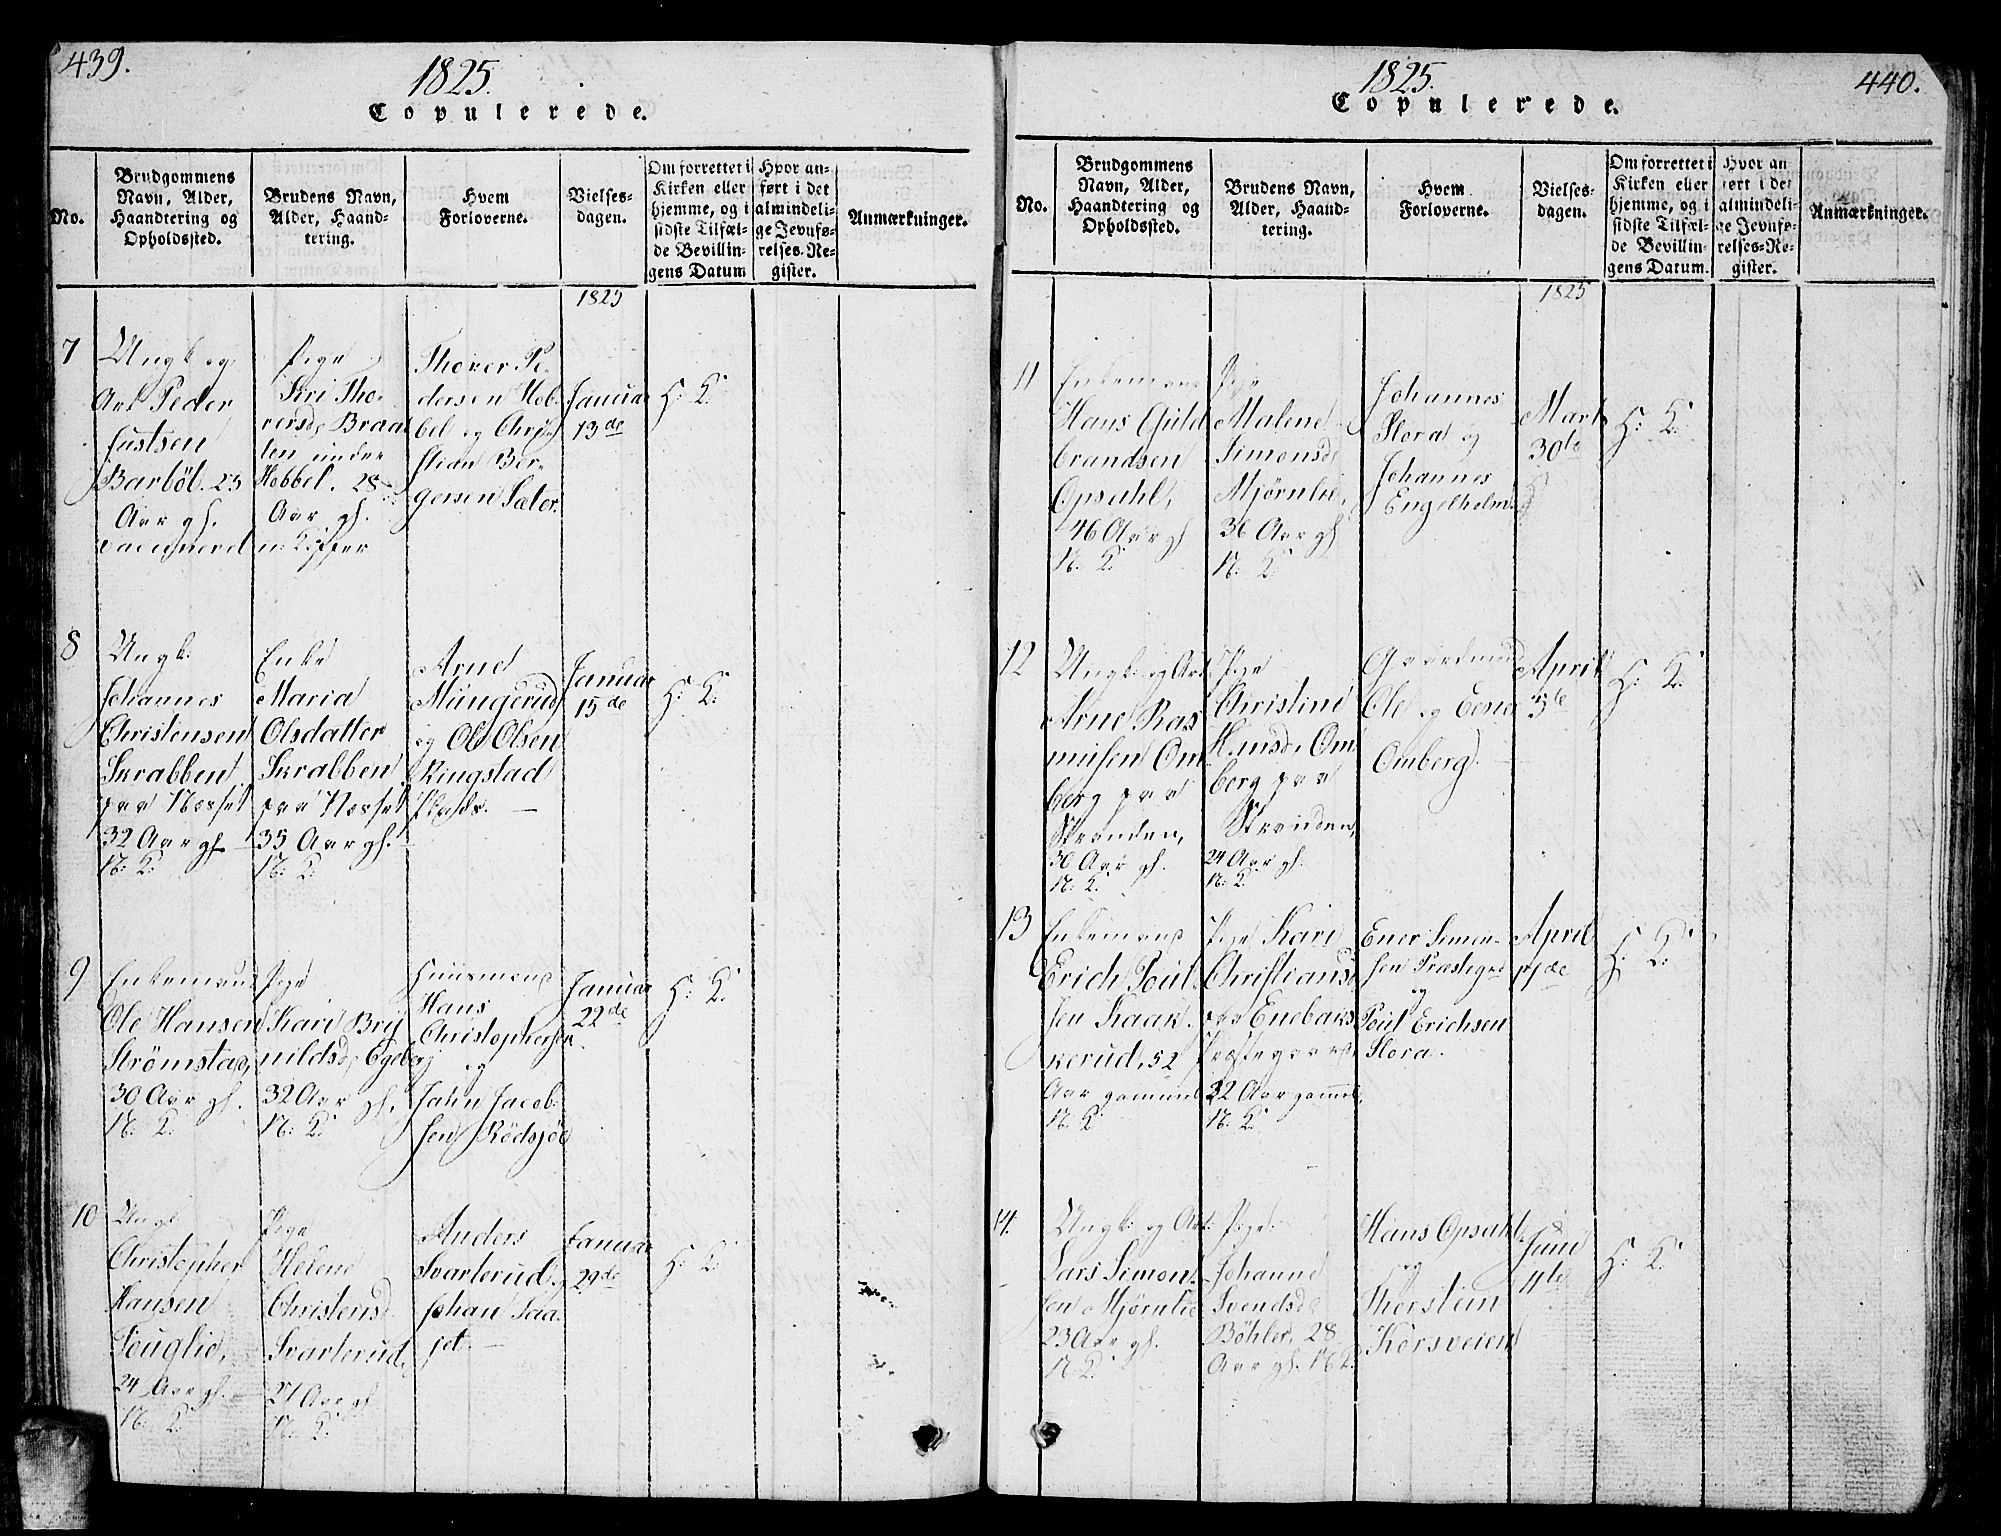 439.
1825.
Copulerede.
No.
Brudgommens
Navn, Alder,
Haandtering og
Opholdssted.
Brudens Navn,
Alder, Haand-
tering.
Hvem
Forloverne.
Vielses-
dagen.
Om forrettet i
Kirken eller
hjemme, og i
sidste Tilfæl-
de Bevillin-
gens Datum
Hvor an-
ført i det
almindeli-
ge Jevnfø-
relses-Re-
gister.
Anmærkninger.
1825
7
Ungk og
Arb Peder
Justsen
Barböl 23
Aar gl.
vaccinered
Pige
Siri Tho-
rersd. Braa
ten under
Hobbel. 28
Aar gl.
n: Kopper
Thorer Pe-
dersen Hob-
bel og Chri-
stian Ber-
gersen Sæter.
Januar
13de
H: K:
8
Ungk.
Johannes
Christensen
Skrabben
paa Næsset
32 Aar gl.
N: K:
Enke
Maria
Olsdatter
Skrabben
paa Næsset
35 Aar gl.
N: K:
Arne
Mungerud
og Ole Olsen
Ringstad
Januar
15de
H: K:
9
Enkemand
Ole Hansen
Strømstad,
30 Aar gl.
N: K:
Pige
Kari Bry
nildsd, Egeberg
32 Aar gl.
N: K:
Huusmænd
Hans
Christophersen
og
Jahn Jacob-
sen Rödsjöe
Januar
22de
H: K:
10
Ungk
Christopher
Hansen
Fouglie,
24 Aar gl.
N: K:
Pige
Helene
Christensd
Svarterud,
27 Aar gl
N: K:
Anders
Svarterud og
Johan Saa-
Januar
29de
H: K:
1825.
Copulerede.
440.
No.
Brudgommens
Navn, Alder,
Haandtering og
Opholdssted.
Brudens Navn,
Alder, Haand-
tering.
Hvem
Forloverne.
Vielses-
dagen.
Om forrettet i
Kirken eller
hjemme, og i
sidste Tilfæl-
de Bevillin-
gens Datum.
Hvor an
ført i det
almindeli-
ge Jevnfø-
relses-Re-
gister.
Anmærkninger.
1825
11
Enkemand
Hans Guld
brandsen
Opsahl,
46 Aar gl
N: K:
Pige
Malene
Simonsd,
Mjørnlie,
36 Aar gl
N: K:
Johannes
Flora og
Johannes
Engelholm
Marts
30te
H: K:
12
Ungk: og Arb
Arne Ras
musen Om
berg paa
Stranden,
30 Aar gl.
N: K:
Pige
Christine
Hansd. Om
berg paa
Stranden,
24 Aar gl.
N: K:
Gaardmænd
Ole og Ener
Omberg.
April
5te
H: K:
13
Enkemand
Erich Poul-
sen Kaak-
kerud, 52
Aar gammel
N: K:
Pige Kari
Christiansd
paa Enebaks
Præstegaard
32 Aar gammel.
N: K:
Ener Simen-
sen Præsteg
og
Poul Erichsen
Flora.
April
H: K:
14.
Ungk: og Arb:
Lars Simon-
sen Mjørnlie
23 Aar gl.
N: K:
Pige:
Johanne
Svendsd
Böhler, 28
Aar gl. N: K:
Hans Opsahl
og
Thorstein
Korsveien
Juni
4te
H: K: